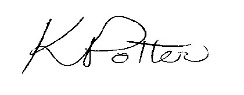 K Potter